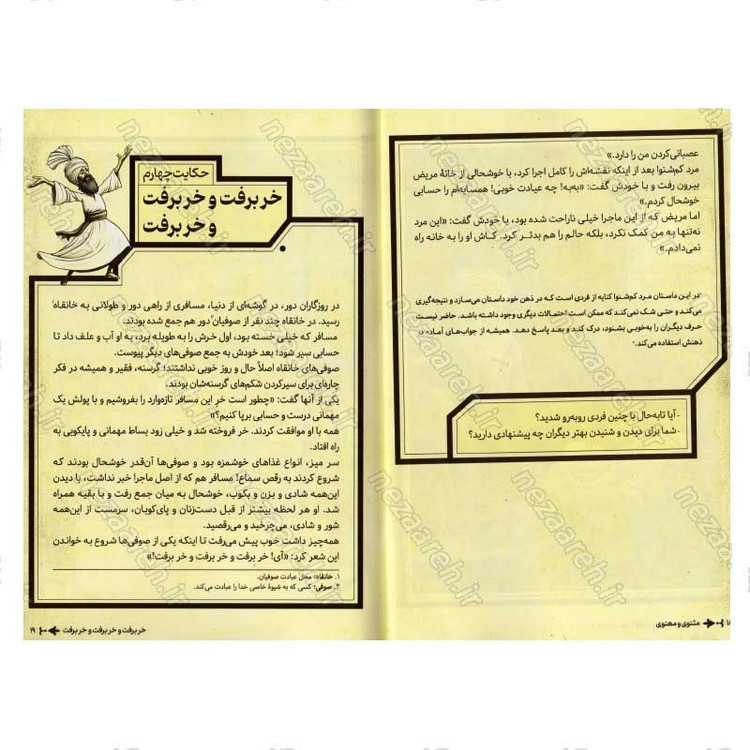 عصبانی‌کردن من را دارد.»
مرد کم‌شنوا بعد از اینکه نقشه‌اش را کامل اجرا کرد، با خوشحالی از خانهٔ مریض
بیرون رفت و با خودش گفت: «به‌به! چه عیادت خوبی! همسایه‌ام را حسابی
خوشحال کردم.»
اما مریض که از این ماجرا خیلی ناراحت شده بود، با خودش گفت: «این مرد
نه‌تنها به من کمک نکرد، بلکه حالم را هم بدتر کرد. کاش او را به خانه راه
نمی‌دادم.»
در این داستان مرد کم‌شنوا کنایه از فردی است که در ذهن خود داستان می‌سازد و نتیجه‌گیری
می‌کند و حتی شک نمی‌کند که ممکن است احتمالات دیگری وجود داشته باشد. حاضر نیست
حرف دیگران را به‌خوبی بشنود، درک کند و بعد پاسخ دهد. همیشه از جواب‌های آماده در
ذهنش استفاده می‌کند.
- آیا تابه‌حال با چنین فردی روبه‌رو شدید؟
- شما برای دیدن و شنیدن بهتر دیگران چه پیشنهادی دارید؟
مثنوی و معنوی
حکایت چهارم
خر برفت و خر برفت
و خر برفت
در روزگاران دور، در گوشه‌ای از دنیا، مسافری از راهی دور و طولانی به خانقاه۱
رسید. در خانقاه چند نفر از صوفیان۲ دور هم جمع شده بودند.
مسافر که خیلی خسته بود، اول خرش را به طویله برد، به او آب و علف داد تا
حسابی سیر شود؛ بعد خودش به جمع صوفی‌های دیگر پیوست.
صوفی‌های خانقاه اصلاً حال و روز خوبی نداشتند؛ گرسنه، فقیر و همیشه در فکر
چاره‌ای برای سیرکردن شکم‌های گرسنه‌شان بودند.
یکی از آنها گفت: «چطور است خر این مسافر تازه‌وارد را بفروشیم و با پولش یک
مهمانی درست و حسابی برپا کنیم؟»
همه با او موافقت کردند. خر فروخته شد و خیلی زود بساط مهمانی و پایکوبی به
راه افتاد.
سر میز، انواع غذاهای خوشمزه بود و صوفی‌ها آن‌قدر خوشحال بودند که
شروع کردند به رقص سماع! مسافر هم که از اصل ماجرا خبر نداشت، با دیدن
این‌همه شادی و بزن و بکوب، خوشحال به میان جمع رفت و با بقیه همراه
شد. او هر لحظه بیشتر از قبل دست‌زنان و پای‌کوبان، سرمست از این‌همه
شور و شادی، می‌چرخید و می‌رقصید.
همه‌چیز داشت خوب پیش می‌رفت تا اینکه یکی از صوفی‌ها شروع به خواندن
این شعر کرد: «آی! خر برفت و خر برفت و خر برفت!»
۱. خانقاه: محل عبادت صوفیان.
۲. صوفی: کسی که به شیوهٔ خاصی خدا را عبادت می‌کند.
خر برفت و خر برفت و خر برفت ۱۹
nezaareh.ir
nezaareh.ir
nezaareh.ir
nezaareh.ir
nezaareh.ir
nezaareh.ir